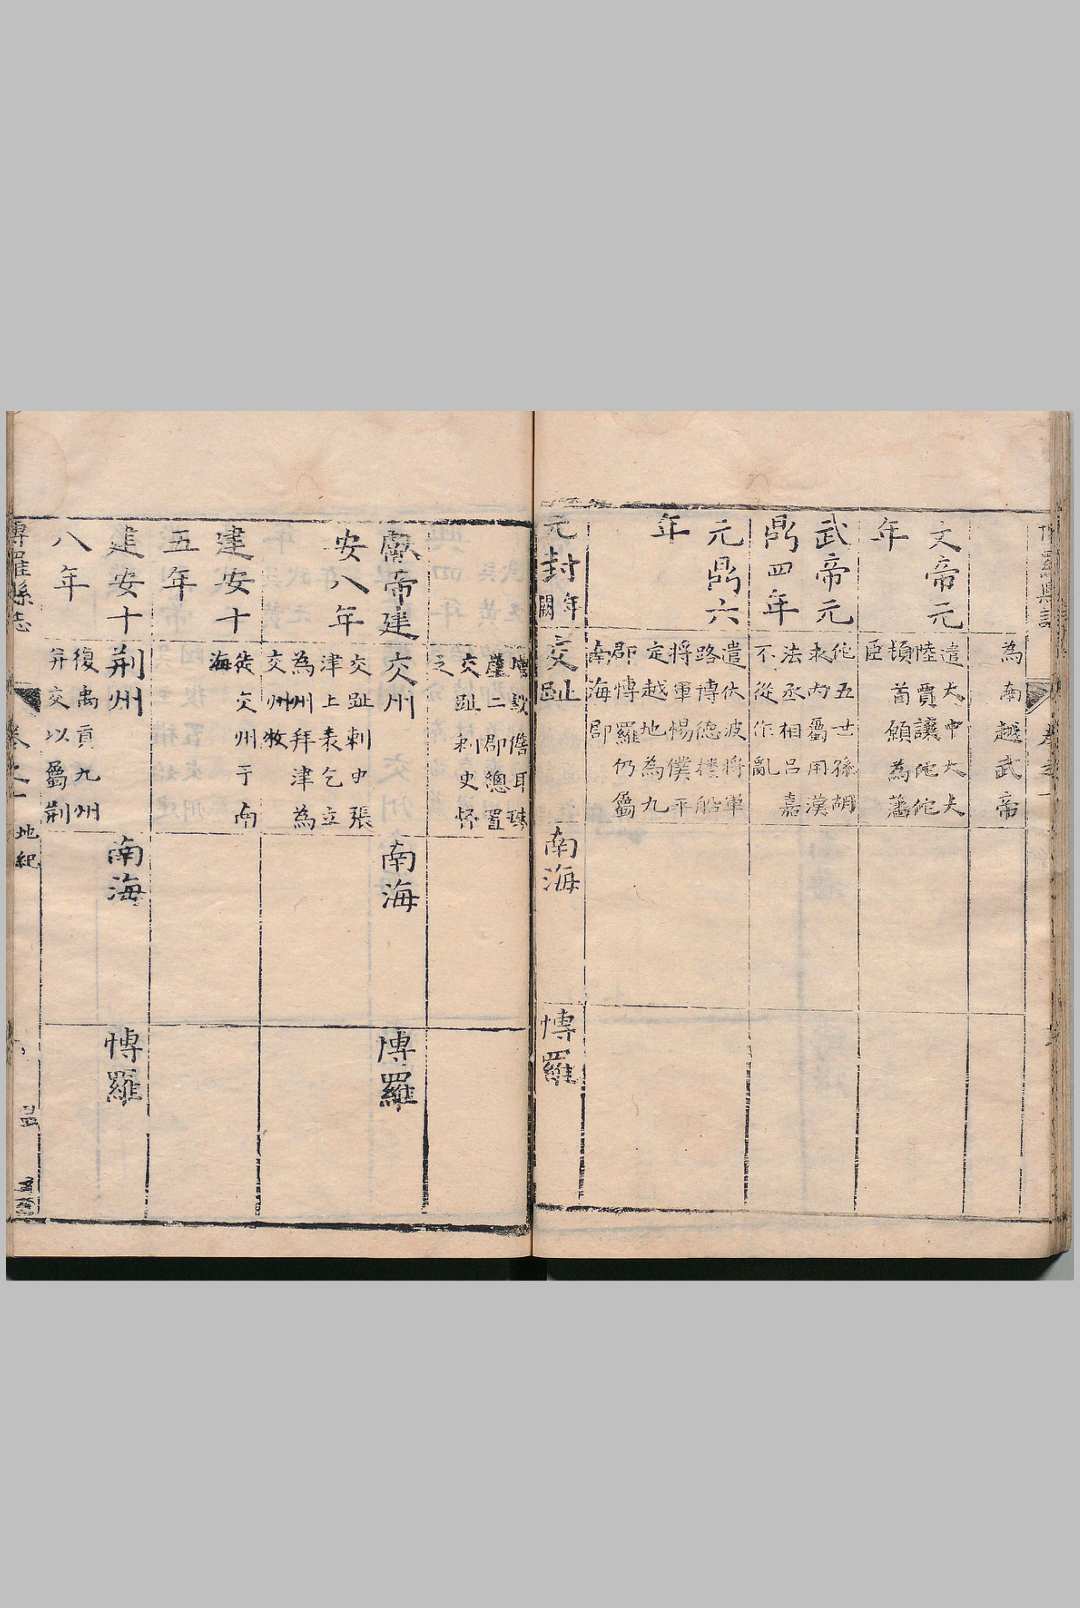 為南越武帝
文帝元
年
遣大中大夫
陸賈讓佗佗
頓首願為藩
臣
武帝元
鼎四年
佗五世孫胡
求內屬用漢
法丞相呂嘉
不從作亂
元鼎六
年
遣伏波將軍
路博德樓船
將軍楊僕平
定越地為九
郡博羅仍屬
南海郡
元封年闕
交趾
南海
博羅
增數儋耳珠
崖二郡總置
交趾刺史
獻帝建
安八年
交州
南海
博羅
交趾刺史張
津上表乞立
為州拜津為
交州牧
建安十
五年
徙交州于南
海
建安十
八年
荆州
復禹貢九州
并交以屬荆
南海
博羅
博羅縣志
卷之一
地紀